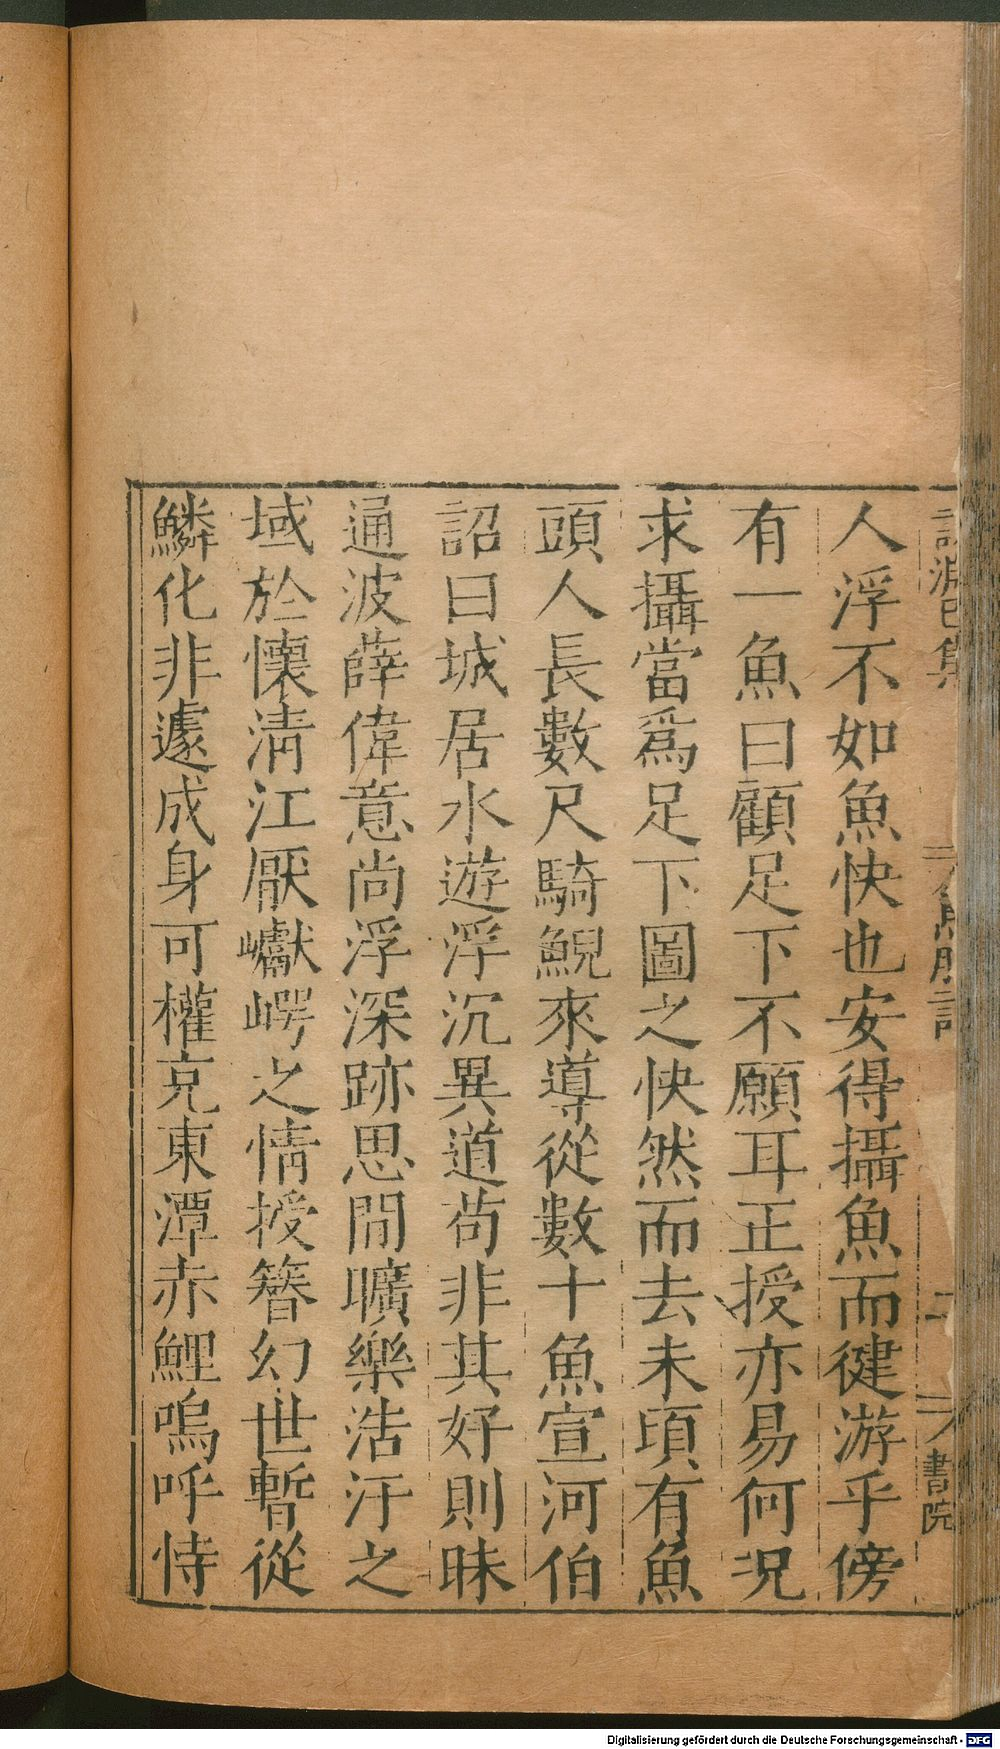 人浮不如魚快也安得攝魚而健游乎傍
有一魚曰顧足下不願耳正授亦易何況
求攝當爲足下圖之快然而去未頃有魚
頭人長數尺騎鯢來導從數十魚宣河伯
詔曰城居水遊浮沉異道苟非其好則昧
通波薛偉意尚浮深跡思閒曠樂浩汗之
域於懷淸江厭巘崿之情投簪幻世暫從
鱗化非遽成身可權充東潭赤鯉嗚呼恃
書院
Digitalisierung gefördert durch die Deutsche Forschungsgemeinschaft - DFG